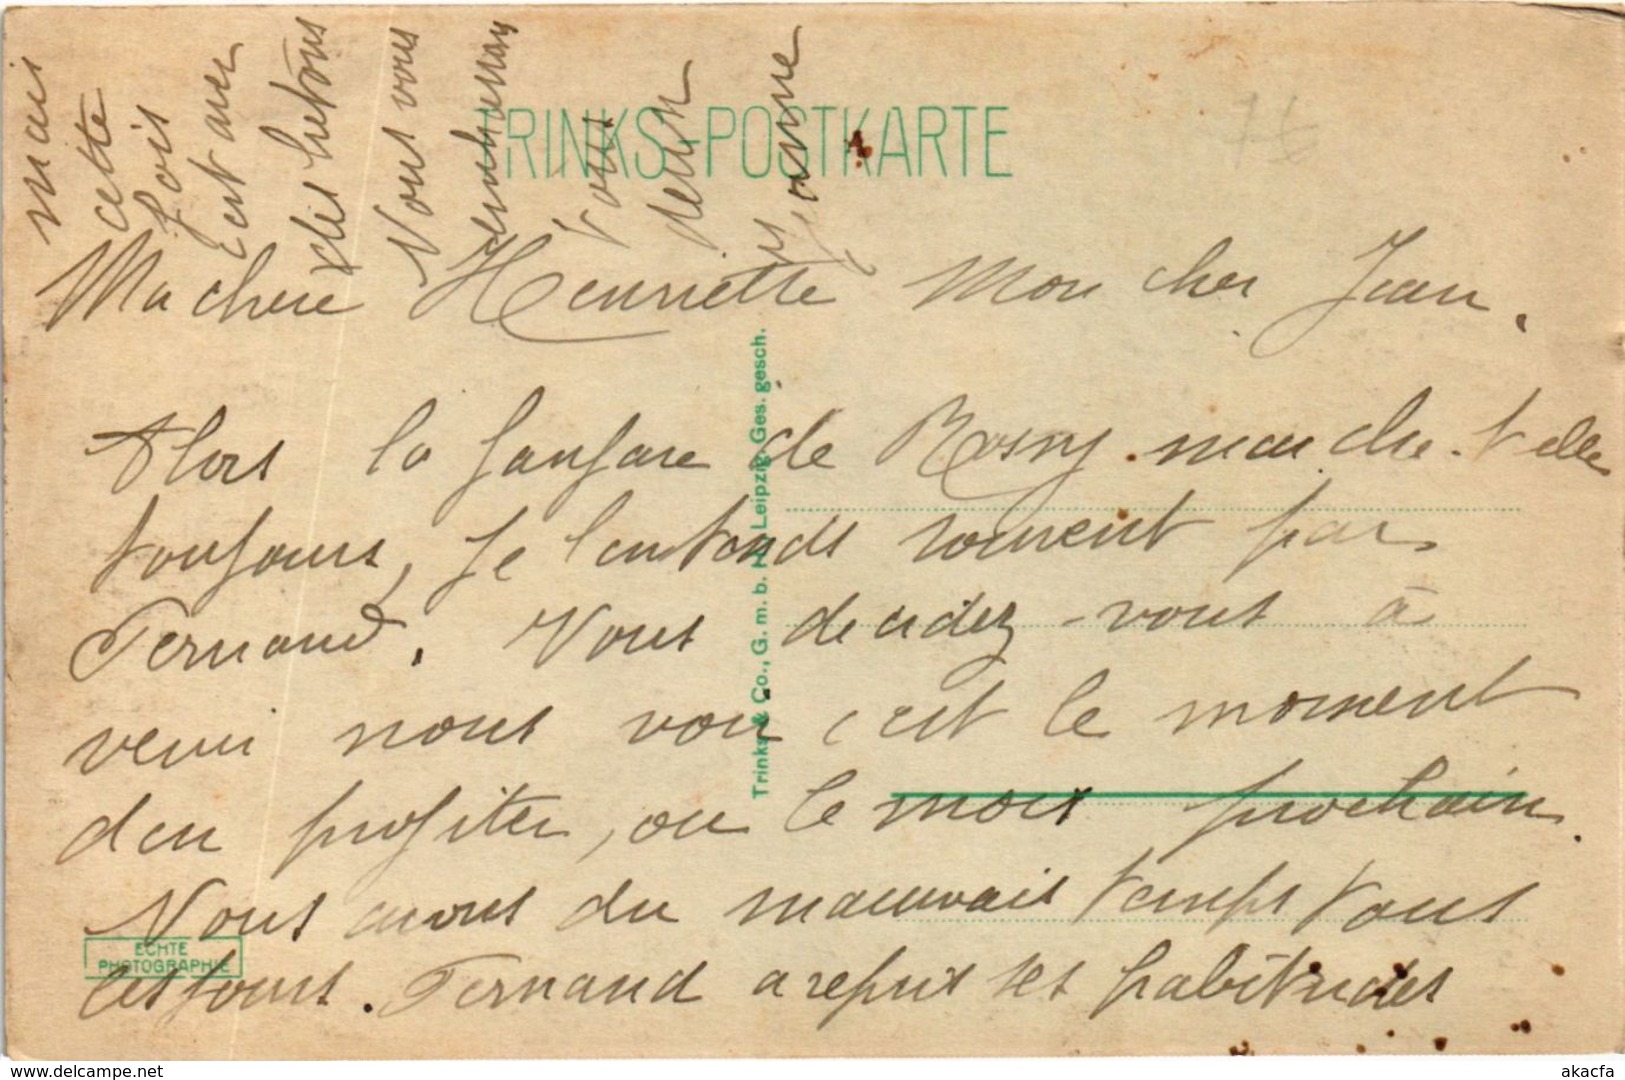 TRINKS-POSTKARTE
Ma chere Henriette Mon cher Jean,
Alors la fanfare de Rosny marche-t-elle
toujours, Je l'entends souvent par
Fernand. Vous decidez-vous à
venir nous voir c'est le moment
d'en profiter, ou le mois prochain.
Nous avons du mauvais temps tous
ces jours. Fernand a repris ses habitudes
mais
cette
fois
c'est avec
des bretons
Nous vous
embrassons
Tous
deux
Yvonne
Trinks & Co., G. m. b. H. Leipzig. Ges. gesch.
ECHTE
PHOTOGRAPHIE
delcampe.net
akacfa